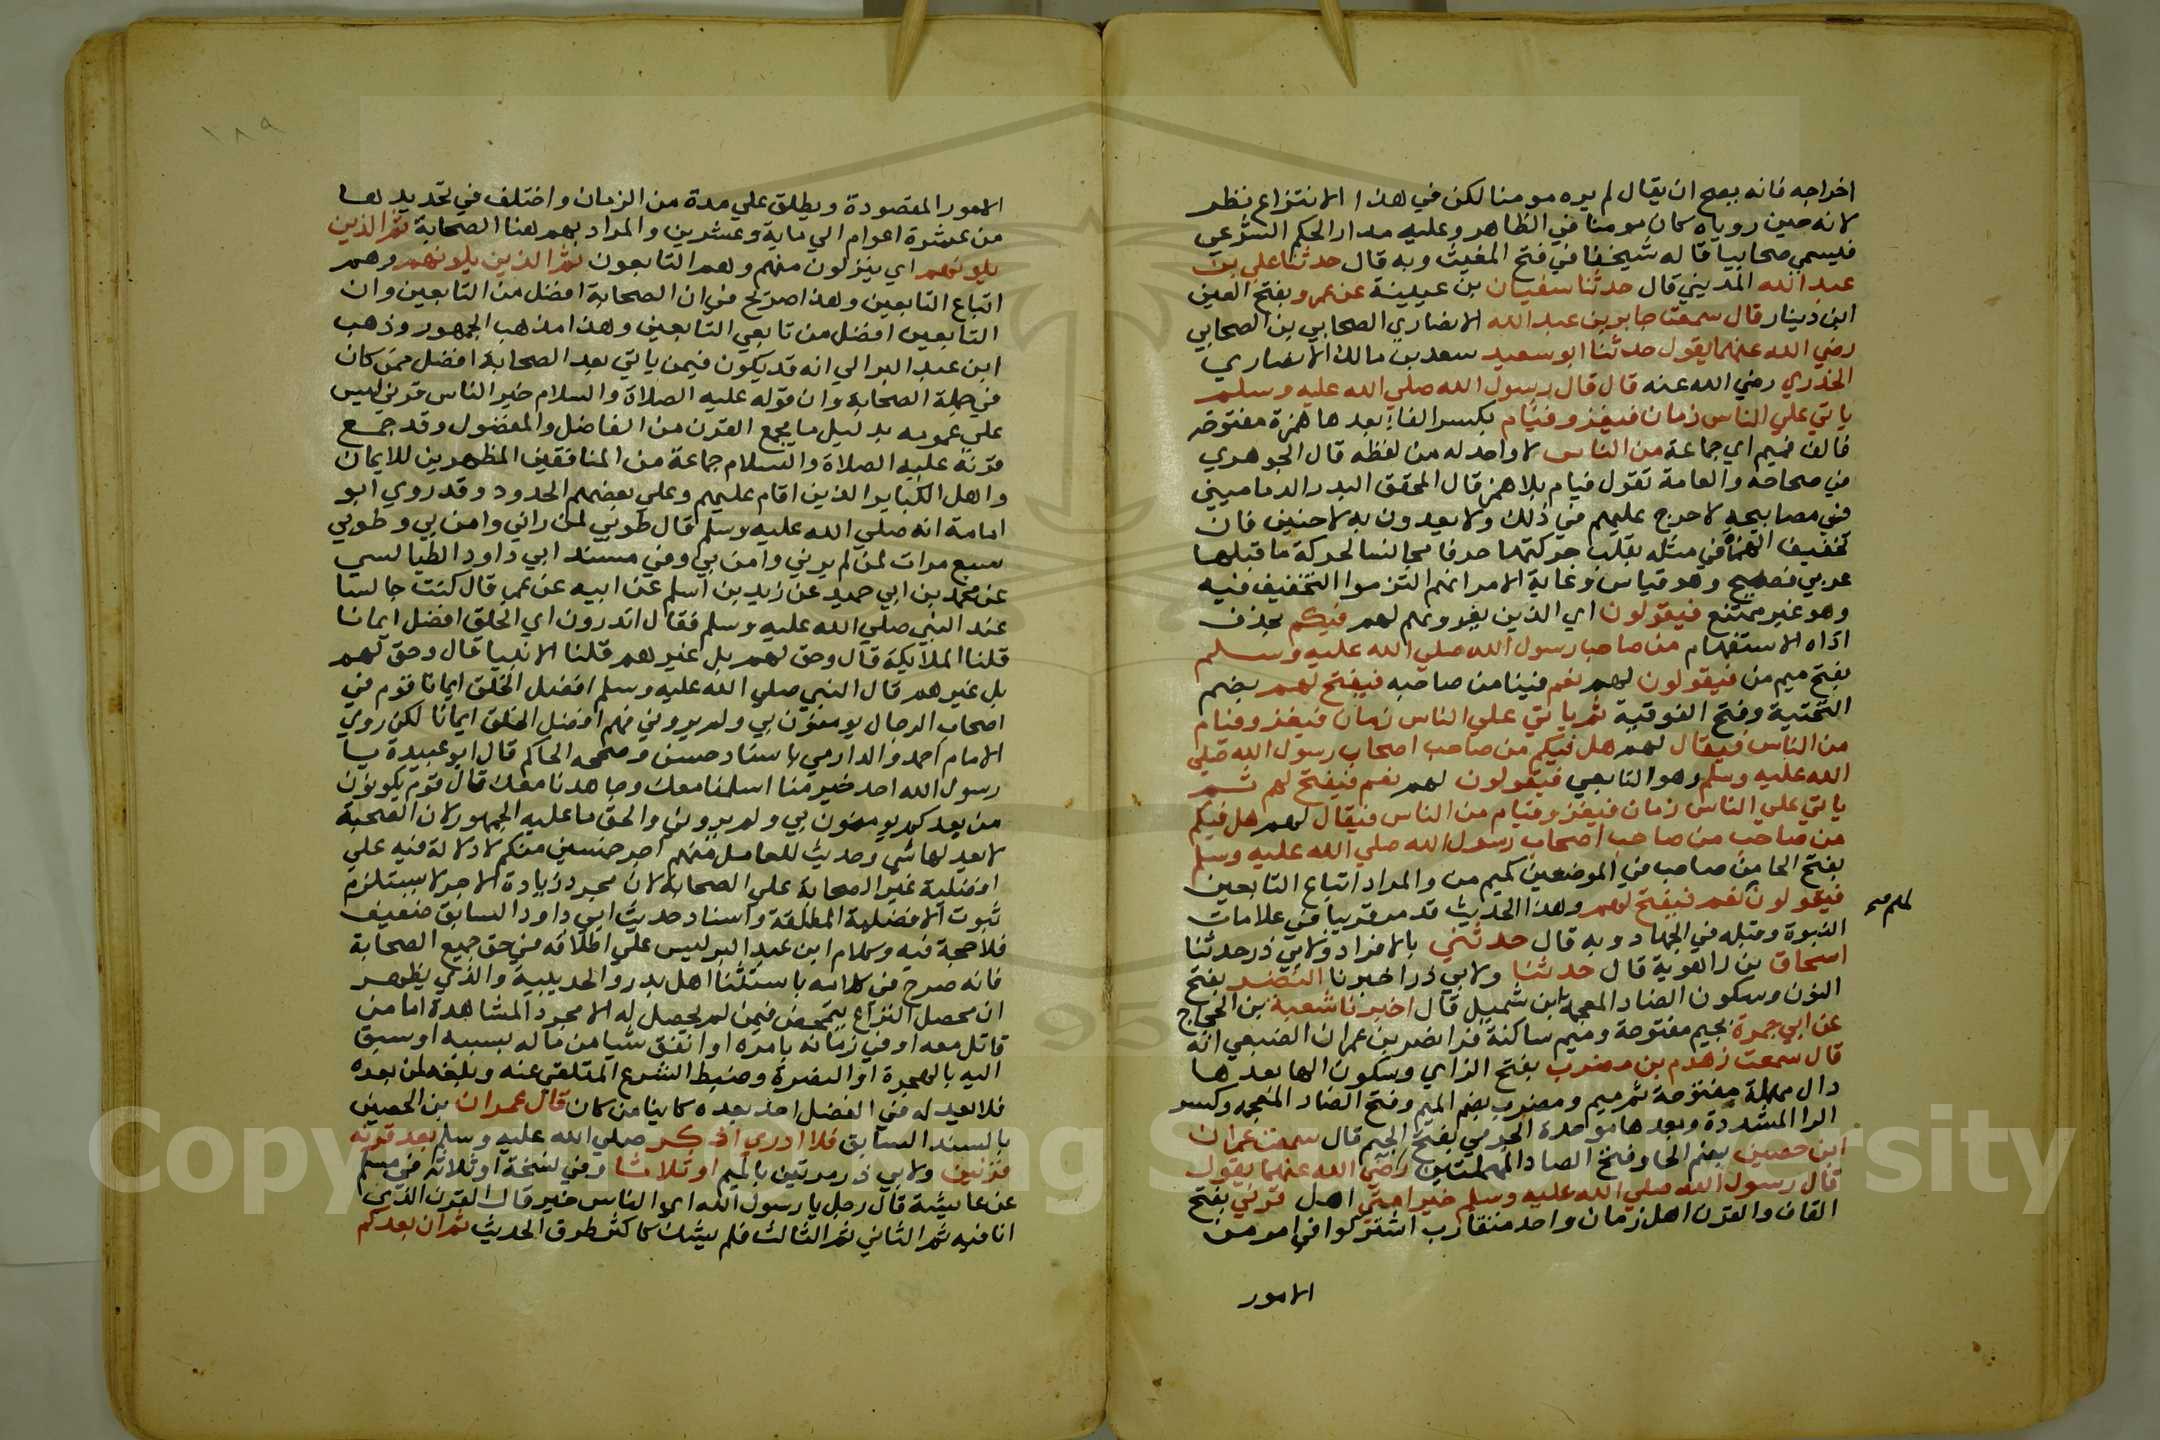 اخراجه فانه يصح ان يقال لم يره مومنا لكن في هذا الانتزاع نظر
لانه حين روياه كان مومنا في الظاهر وعليه مدار الحكم الشرعي
فليسمي صحابيا قاله شيخنا في فتح المغيث وبه قال حدثنا علي بن
عبد الله المديني قال حدثنا سفيان بن عيينة عن عمرو بفتح العين
ابن دينار قال سمعت جابر بن عبد الله الانصاري الصحابي بن الصحابي
رضي الله عنهما يقول حدثنا ابو سعيد سعد بن مالك الانصاري
الخدري رضي الله عنه قال قال رسول الله صلي الله عليه وسلم
ياتي علي الناس زمان فيغزو فئام بكسر الفاء بعدها همزة مفتوحة
فالف فميم اي جماعة من الناس لا واحد له من لفظه قال الجوهري
في صحاحه والعامة تقول فيام بلا همز قال المحقق البدر الدماميني
في مصابيحه لا حرج عليهم في ذلك ولا يعدون به لاحنين فان
تخفيف الهمزة في مثله بقلب حركتها حرفا مجانسا لحركة ما قبلها
عربي فصيح وهو قياس وغاية الامر انهم التزموا التخفيف فيه
وهو غير ممتنع فيقولون اي الذين يغزونهم لهم فيكم بحذف
اداه الاستفهام من صاحب رسول الله صلي الله عليه وسلم
بفتح ميم من فيقولون لهم نعم فينا من صاحبه فيفتح لهم بضم
التحتية وفتح الفوقية ثم ياتي علي الناس زمان فيغزو فئام
من الناس فيقال لهم هل فيكم من صاحب اصحاب رسول الله صلي
الله عليه وسلم وهو التابعي فيقولون لهم نعم فيفتح لهم ثم
ياتي علي الناس زمان فيغزو فئام من الناس فيقال لهم هل فيكم
من صاحب من صاحب اصحاب رسول الله صلي الله عليه وسلم
بفتح الحا من صاحب في الموضعين كميم من والمراد اتباع التابعين
فيقولون نعم فيفتح لهم وهذا الحديث قد مر قريبا في علامات
النبوة وقبله في الجهاد وبه قال حدثني بالافراد ولابي ذر حدثنا
اسحاق بن راهوية قال حدثنا ولابي ذر اخبرنا النضر بفتح
النون وسكون الضاد المعجمة ابن شميل قال اخبرنا شعبة بن الحجاج
عن ابي جمرة بجيم مفتوحة وميم ساكنة فرا نصر بن عمران الضبعي انه
قال سمعت زهدم بن مضرب بفتح الزاي وسكون الها بعدها
دال مهملة مفتوحة ثم ميم ومضرب بضم الميم وفتح الضاد المعجمه وكسر
الرا المشددة وبعدها موحدة الجرمي بفتح الجيم قال سمعت عمران
ابن حصين بضم الحا وفتح الصاد المهملتين رضي الله عنهما يقول
قال رسول الله صلي الله عليه وسلم خير امتي اهل قرني بفتح
القاف والقرن اهل زمان واحد متقارب اشتركوا في امر من
الامور
١٨٩
الامور المقصودة ويطلق علي مدة من الزمان واختلف في تحديدها
من عشرة اعوام الي ماية وعشرين والمراد بهم هنا الصحابة ثم الذين
يلونهم اي ينزلون منهم وهم التابعون ثم الذين يلونهم وهم
اتباع التابعين وهذا صرح في ان الصحابة افضل من التابعين وان
التابعين افضل من تابعي التابعين وهذا مذهب الجمهور وذهب
ابن عبد البر الي انه قد يكون فيمن ياتي بعد الصحابة افضل ممن كان
في جملة الصحابة وان قوله عليه الصلاة والسلام خير الناس قرني ليس
علي عمومه بدليل ما يجمع القرن من الفاضل والمفضول وقد جمع
قرنه عليه الصلاة والسلام جماعة من المنافقين المظهرين للايمان
واهل الكباير الذين اقام عليهم وعلي بعضهم الحدود وقد روي ابو
امامة انه صلي الله عليه وسلم قال طوبي لمن راني وامن بي وطوبي
سبع مرات لمن لم يرني وامن بي وفي مسند ابي داود الطيالسي
عن محمد بن ابي حميد عن زيد بن اسلم عن ابيه عن عمر قال كنت جالسا
عند النبي صلي الله عليه وسلم فقال اتدرون اي الخلق افضل ايمانا
قلنا الملايكة قال وحق لهم بل غيرهم قلنا الانبيا قال وحق لهم
بل غيرهم قال النبي صلي الله عليه وسلم افضل الخلق ايمانا قوم في
اصحاب الرجال يومنون بي ولم يروني فهم افضل الخلق ايمانا لكن روي
الامام احمد والدارمي باسناد حسن وصححه الحاكم قال ابو عبيدة يا
رسول الله احد خير منا اسلمنا معك وجاهدنا معك قال قوم يكونون
من بعدكم يومنون بي ولم يروني والحق ما عليه الجمهور لان الصحبة
لا يعدلها شي وحديث للعامل منهم اجر خمسين منكم لا دلالة فيه علي
افضلية غير الصحابة علي الصحابة لان مجرد زيادة الاجر لا يستلزم
ثبوت الافضلية المطلقة واسناد حديث ابي داود السابق ضعيف
فلا حجة فيه وكلام ابن عبد البر ليس علي اطلاقه في حق جميع الصحابة
فانه صرح في كلامه باستثنا اهل بدر والحديبية والذي يظهر
ان محصل النزاع يتمحض فيمن لم يحصل له الا مجرد المشاهدة اما من
قاتل معه او في زمانه بامره او انفق شيا من ماله بسببه او سبق
اليه بالهجرة او النصرة وضبط الشرع المتلقي عنه وبلغه لمن بعده
فلا يعدله في الفضل احد بعده كاينا من كان قال عمران بن الحصين
بالسند السابق فلا ادري اذكر صلي الله عليه وسلم بعد قرنه
قرنين ولابي ذر مرتين بالميم او ثلاثا وفي نسخة او ثلاثة في مسلم
عن عايشة قال رجل يا رسول الله اي الناس خير قال القرن الذي
انا فيه ثم الثاني ثم الثالث فلم يشك كاكثر طرق الحديث ثم ان بعدكم